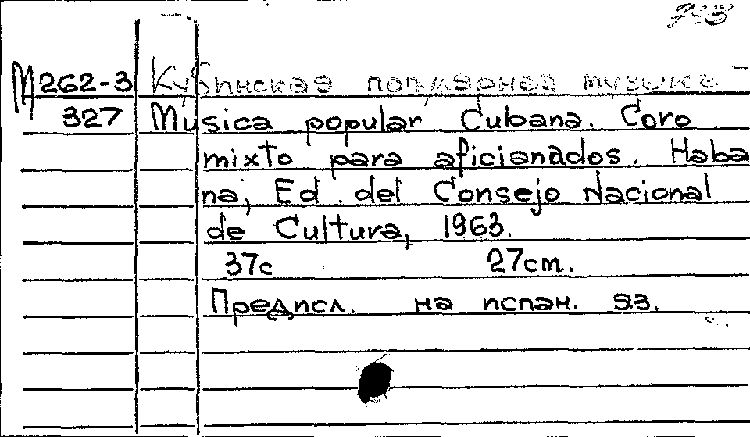 М262-3 Кубинская популярная музыка -
327 Musica popular Cubana. Coro
mixto para aficionados. Haba
na, Ed. del Consejo Nacional
de Cultura, 1963.
37с 27cm.
Предисл. на испан. яз.